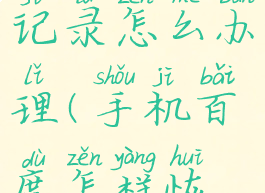 记录怎么办
lǐ shǒu jī bǎi
理(手机百
dù zěn yàng huī
度怎样恢